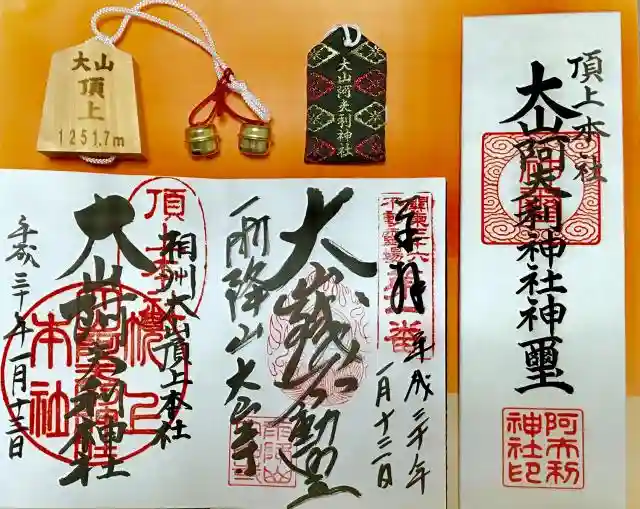 大山
頂上
1251.7m
大山阿夫利神社
頂上本社
大山阿夫利神社神璽
阿夫利
神社印
頂上
相州大山頂上本社
大山阿夫利神社
本社
平成三十年一月十三日
奉拝
平成三十年
一月十三日
大山
不動
雨降山大山寺